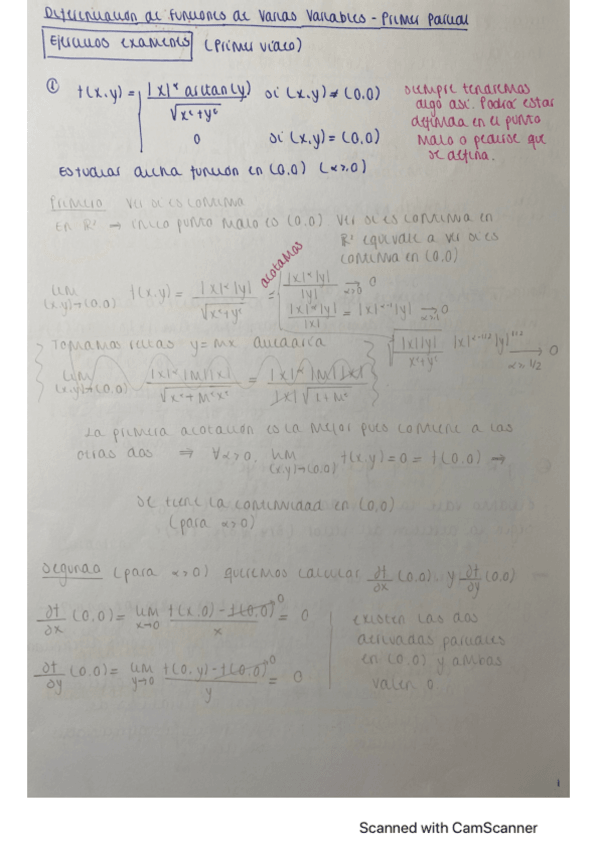 Diferenciación de funciones de Varias Variables - Primer Parcial
Ejercicios exámenes (Primer vídeo)
① f(x,y) = |x|^α arctan(y) / √(x²+y²) si (x,y) ≠ (0,0)
0 si (x,y) = (0,0)
siempre tendremos
algo así. Podría estar
definida en el punto
malo o pedirse que
se defina.
Estudiar dicha función en (0,0) (α>0)
Primero ver si es continua
En R² → único punto malo es (0,0)
ver si es continua en
R² equivale a ver si es
continua en (0,0)
lim (x,y)→(0,0) f(x,y) = |x|^α|y| / √(x²+y²) =
acotamos
|x|^α|y| / |y| → 0 α>0
|x|^α|y| / |x| = |x|^(α-1)|y| → 0
Tomamos rectas y=mx
lim (x,y)→(0,0) |x|^α|m||x| / √(x²+m²x²) = |x|^α|m||x| / |x|√(1+m²)
√(|x||y| / x²+y²) |x|^(α-1/2)|y|^(1/2) → 0 α>1/2
La primera acotación es la mejor pues contiene a las
otras dos ⇒ ∀α>0, lim (x,y)→(0,0) f(x,y) = 0 = f(0,0) →
se tiene la continuidad en (0,0)
(para α>0)
Segundo (para α>0) queremos calcular ∂f/∂x (0,0) y ∂f/∂y (0,0)
∂f/∂x (0,0) = lim x→0 f(x,0) - f(0,0) / x = 0
∂f/∂y (0,0) = lim y→0 f(0,y) - f(0,0) / y = 0
existen las dos
derivadas parciales
en (0,0) y ambas
valen 0.
1
Scanned with CamScanner